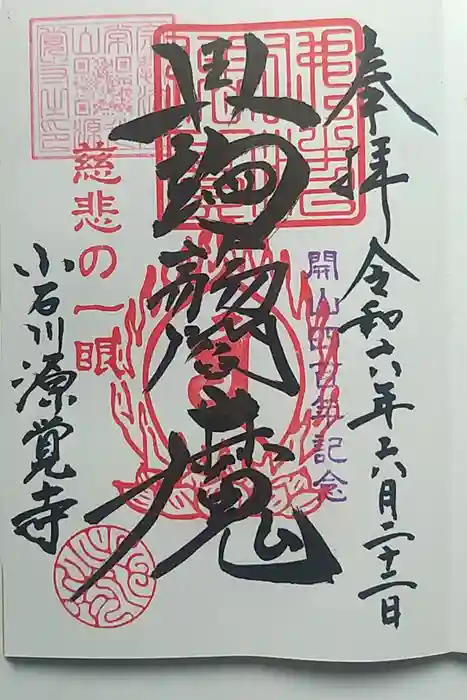 奉拝
令和六年六月二十二日
開山四百年記念
蒟蒻閻魔
慈悲の一眼
小石川源覚寺